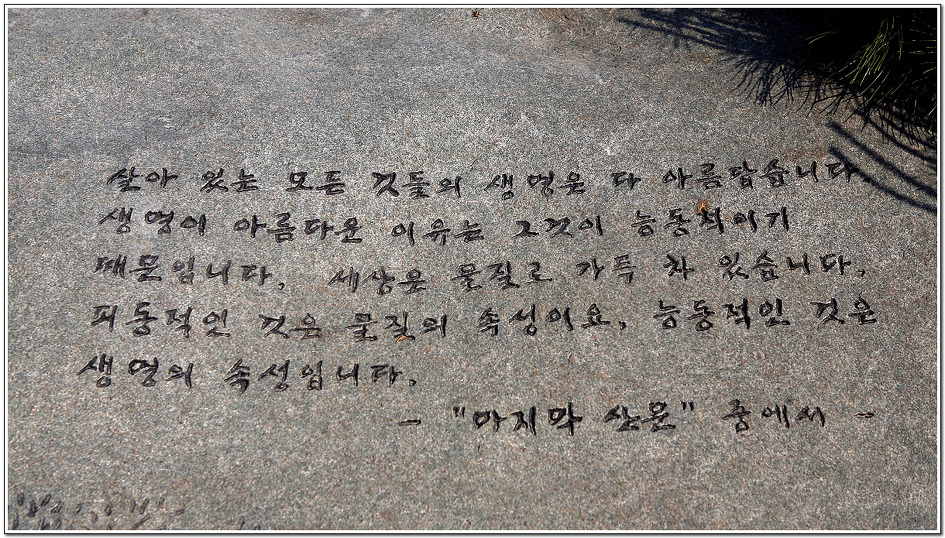 살아 있는 모든 것들의 생명은 다 아름답습니다.
생명이 아름다운 이유는 그것이 능동적이기
때문입니다. 세상은 물질로 가득 차 있습니다.
피동적인 것은 물질의 속성이요, 능동적인 것은
생명의 속성입니다.
- "마지막 산문" 중에서 -